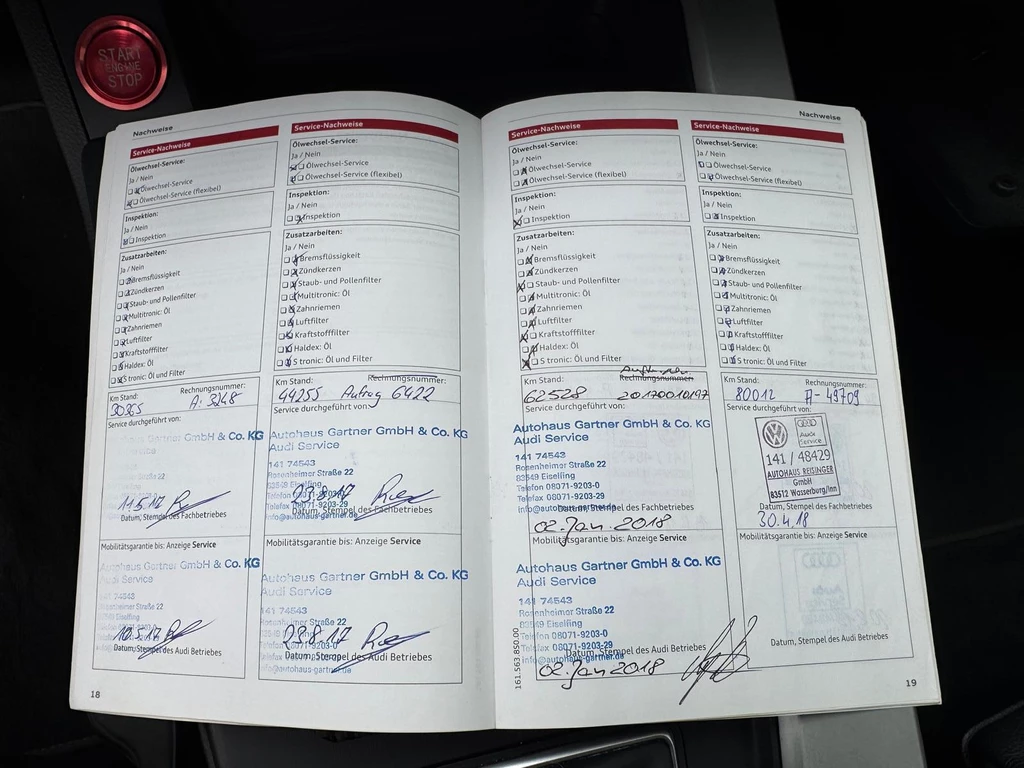 START
ENGINE
STOP
Nachweise
Service-Nachweise
Ölwechsel-Service:
Ja / Nein
Ölwechsel-Service
Ölwechsel-Service (flexibel)
Inspektion:
Ja / Nein
Inspektion
Zusatzarbeiten:
Ja / Nein
Bremsflüssigkeit
Zündkerzen
Staub- und Pollenfilter
Multitronic: Öl
Zahnriemen
Luftfilter
Kraftstofffilter
Haldex: Öl
S tronic: Öl und Filter
Km Stand: Rechnungsnummer:
30365 A: 3248
Service durchgeführt von:
Autohaus Gartner GmbH & Co. KG
Datum, Stempel des Fachbetriebes
Mobilitätsgarantie bis: Anzeige Service
Autohaus Gartner GmbH & Co. KG
Audi Service
141 74543
Rosenheimer Straße 22
83549 Eiselfing
10.5.17
Datum, Stempel des Audi Betriebes
18
Service-Nachweise
Ölwechsel-Service:
Ja / Nein
Ölwechsel-Service
Ölwechsel-Service (flexibel)
Inspektion:
Ja / Nein
Inspektion
Zusatzarbeiten:
Ja / Nein
Bremsflüssigkeit
Zündkerzen
Staub- und Pollenfilter
Multitronic: Öl
Zahnriemen
Luftfilter
Kraftstofffilter
Haldex: Öl
S tronic: Öl und Filter
Km Stand: Rechnungsnummer:
44255 Auftrag 6422
Service durchgeführt von:
Autohaus Gartner GmbH & Co. KG
Audi Service
141 74543
Rosenheimer Straße 22
83549 Eiselfing
Telefon 08071-9203-0
23.8.17
Telefax 08071-9203-29
Datum, Stempel des Fachbetriebes
info@autohaus-gartner.de
Mobilitätsgarantie bis: Anzeige Service
Autohaus Gartner GmbH & Co. KG
Audi Service
141 74543
Rosenheimer Straße 22
23.8.17
Datum, Stempel des Audi Betriebes
info@autohaus-gartner.de
Nachweise
Service-Nachweise
Ölwechsel-Service:
Ja / Nein
Ölwechsel-Service
Ölwechsel-Service (flexibel)
Inspektion:
Ja / Nein
Inspektion
Zusatzarbeiten:
Ja / Nein
Bremsflüssigkeit
Zündkerzen
Staub- und Pollenfilter
Multitronic: Öl
Zahnriemen
Luftfilter
Kraftstofffilter
Haldex: Öl
S tronic: Öl und Filter
Km Stand: Rechnungsnummer
62528 20170010197
Service durchgeführt von:
Autohaus Gartner GmbH & Co. KG
Audi Service
141 74543
Rosenheimer Straße 22
83549 Eiselfing
Telefon 08071-9203-0
Telefax 08071-9203-29
info@autohaus-gartner.de
Datum, Stempel des Fachbetriebes
02. Jan. 2018
Mobilitätsgarantie bis: Anzeige Service
Autohaus Gartner GmbH & Co. KG
Audi Service
141 74543
Rosenheimer Straße 22
83549 Eiselfing
Telefon 08071-9203-0
Telefax 08071-9203-29
Datum, Stempel des Audi Betriebes
info@autohaus-gartner.de
02. Jan 2018
161.563.850.00
Service-Nachweise
Ölwechsel-Service:
Ja / Nein
Ölwechsel-Service
Ölwechsel-Service (flexibel)
Inspektion:
Ja / Nein
Inspektion
Zusatzarbeiten:
Ja / Nein
Bremsflüssigkeit
Zündkerzen
Staub- und Pollenfilter
Multitronic: Öl
Zahnriemen
Luftfilter
Kraftstofffilter
Haldex: Öl
S tronic: Öl und Filter
Km Stand: Rechnungsnummer:
80012 A-49709
Service durchgeführt von:
Audi
Service
141 / 48429
AUTOHAUS REISINGER
GmbH
83512 Wasserburg/Inn
Datum, Stempel des Fachbetriebes
30.4.18
Mobilitätsgarantie bis: Anzeige Service
Datum, Stempel des Audi Betriebes
19